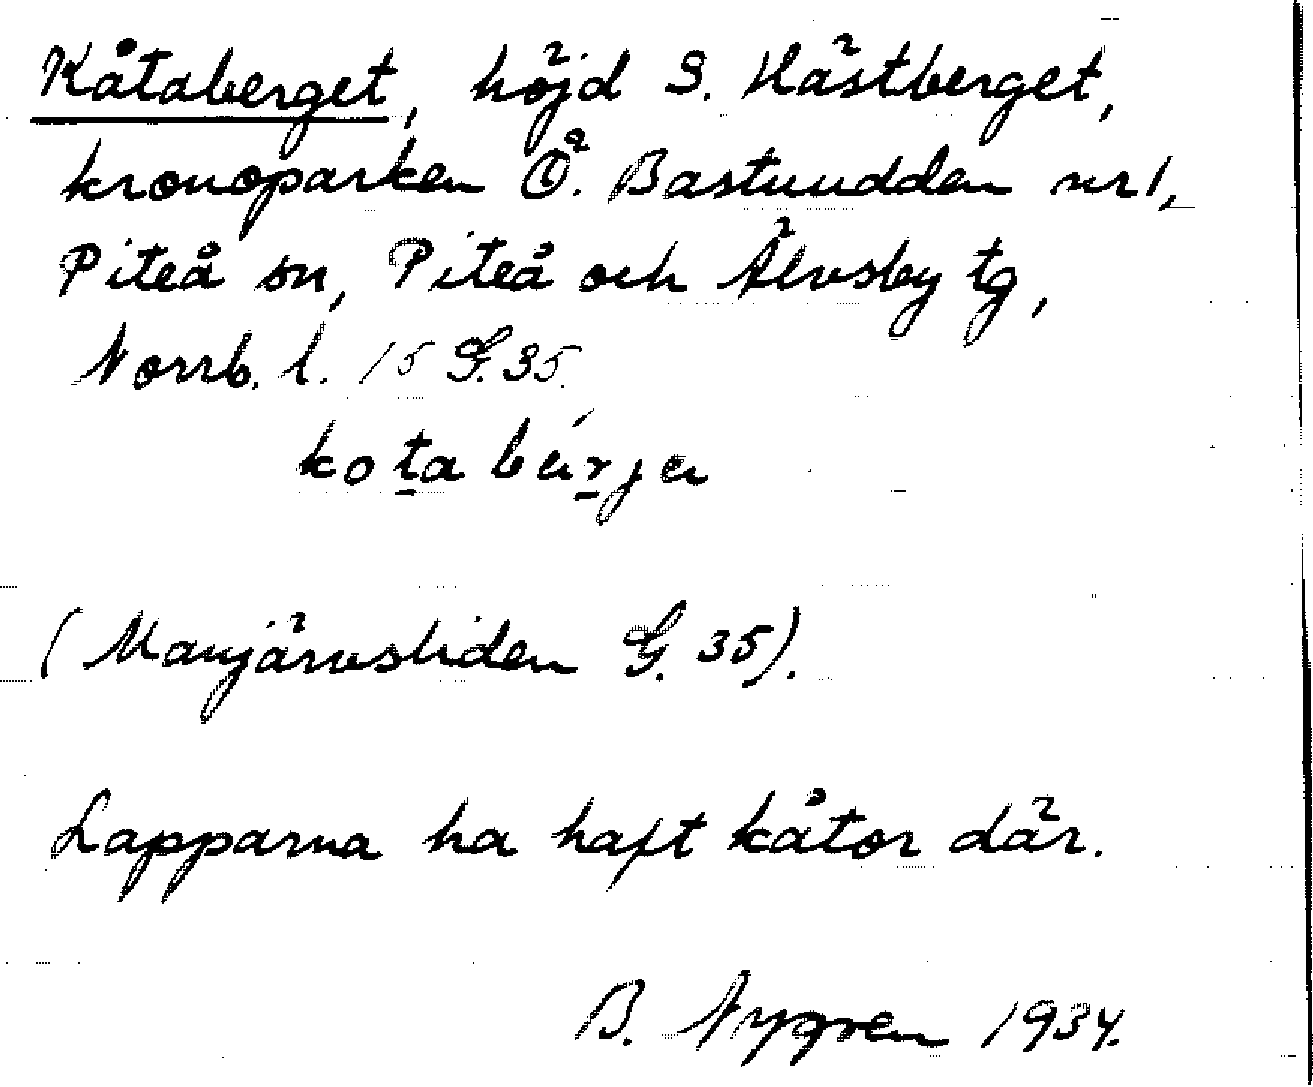 Kåtaberget, höjd S. Hästberget,
kronoparken Ö. Bastuudden nr 1,
Piteå sn, Piteå och Älvsby tg,
Norrb. l. 15 G. 35.
kota bärjer
(Manjärvsliden G. 35).
Lapparna ha haft kåtor där.
B. Nygren 1934.